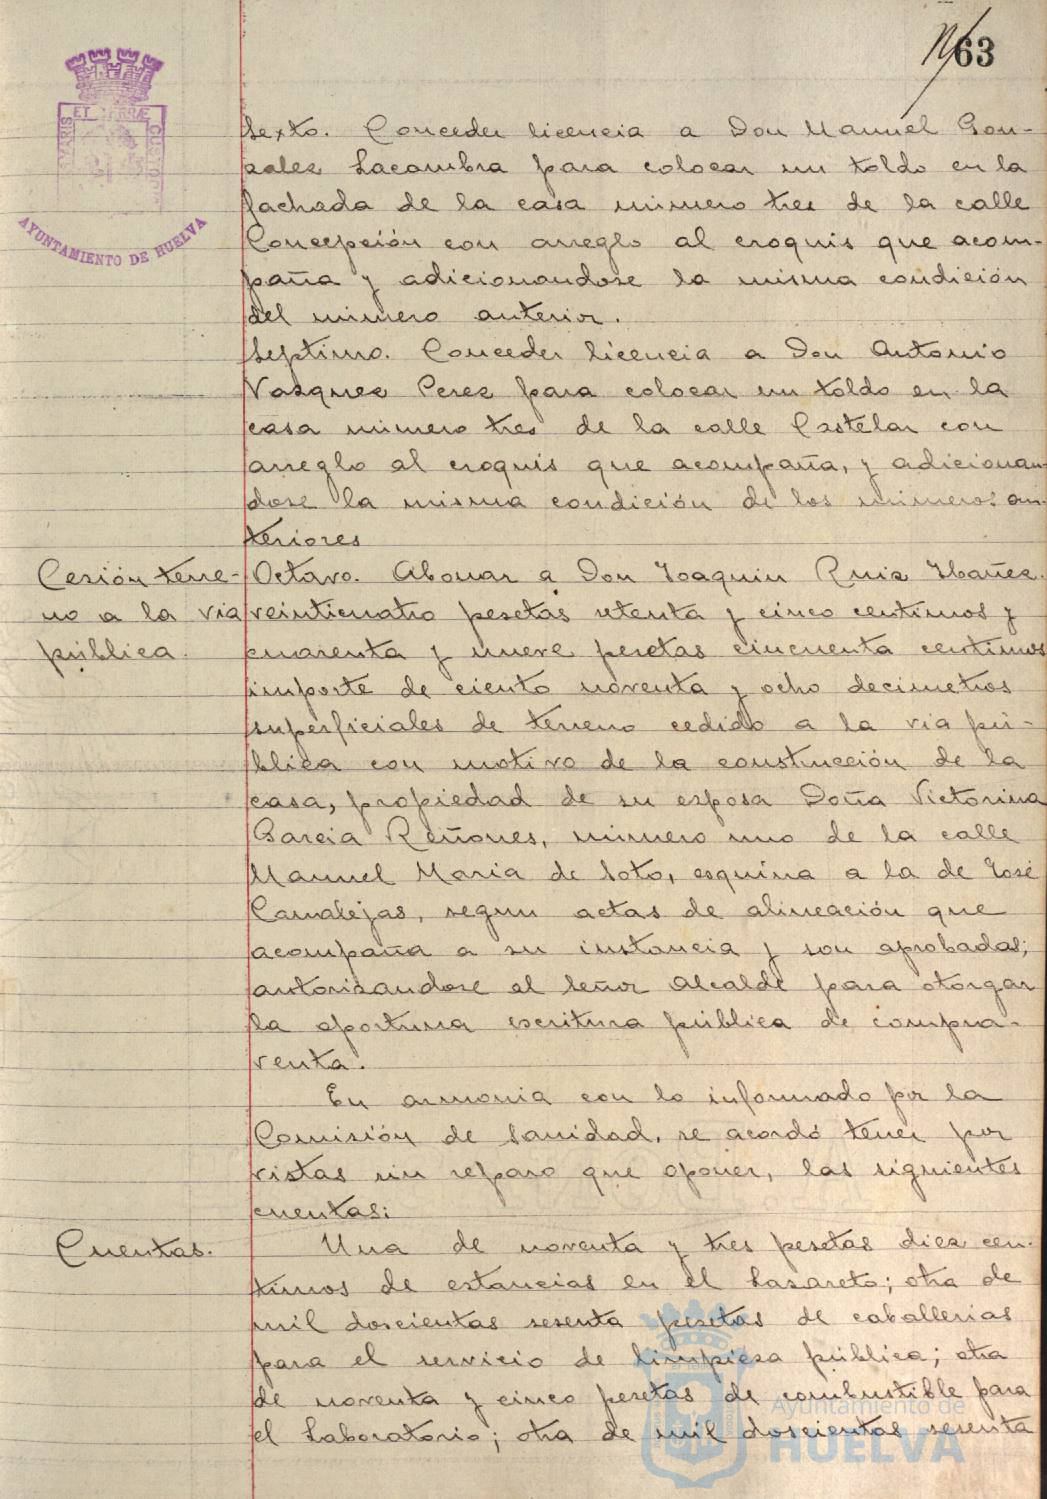 63
PORTUS MARIS ET TERRÆ CUSTODIA
AYUNTAMIENTO DE HUELVA
Sexto. Conceder licencia a Don Manuel Gon-
zalez Lacambra para colocar un toldo en la
fachada de la casa número tres de la calle
Concepción con arreglo al croquis que acom-
paña y adicionandose la misma condición
del número anterior.
Septimo. Conceder licencia a Don Antonio
Vazquez Perez para colocar un toldo en la
casa número tres de la calle Castelar con
arreglo al croquis que acompaña, y adicionan-
dose la misma condición de los números an-
teriores
Cesión terre-
no a la via
pública.
Octavo. Abonar a Don Joaquin Ruiz Ibañez.
veinticuatro pesetas setenta y cinco centimos y
cuarenta y nueve pesetas cincuenta centimos
importe de ciento noventa y ocho decimetros
superficiales de terreno cedido a la via pú-
blica con motivo de la construcción de la
casa, propiedad de su esposa Doña Victorina
Garcia Reñones, número uno de la calle
Manuel Maria de Soto, esquina a la de José
Canalejas, segun actas de alineación que
acompaña a su instancia y son aprobadas;
autorizandose al Señor Alcalde para otorgar
la oportuna escritura pública de compra-
venta.
En armonia con lo informado por la
Comisión de Sanidad, se acordó tener por
vistas sin reparo que oponer, las siguientes
cuentas:
Cuentas.
Una de noventa y tres pesetas diez cen-
timos de estancias en el Lazareto; otra de
mil doscientas sesenta pesetas de caballerias
para el servicio de limpieza pública; otra
de noventa y cinco pesetas de combustible para
el Laboratorio; otra de mil doscientas sesenta
Ayuntamiento de
HUELVA